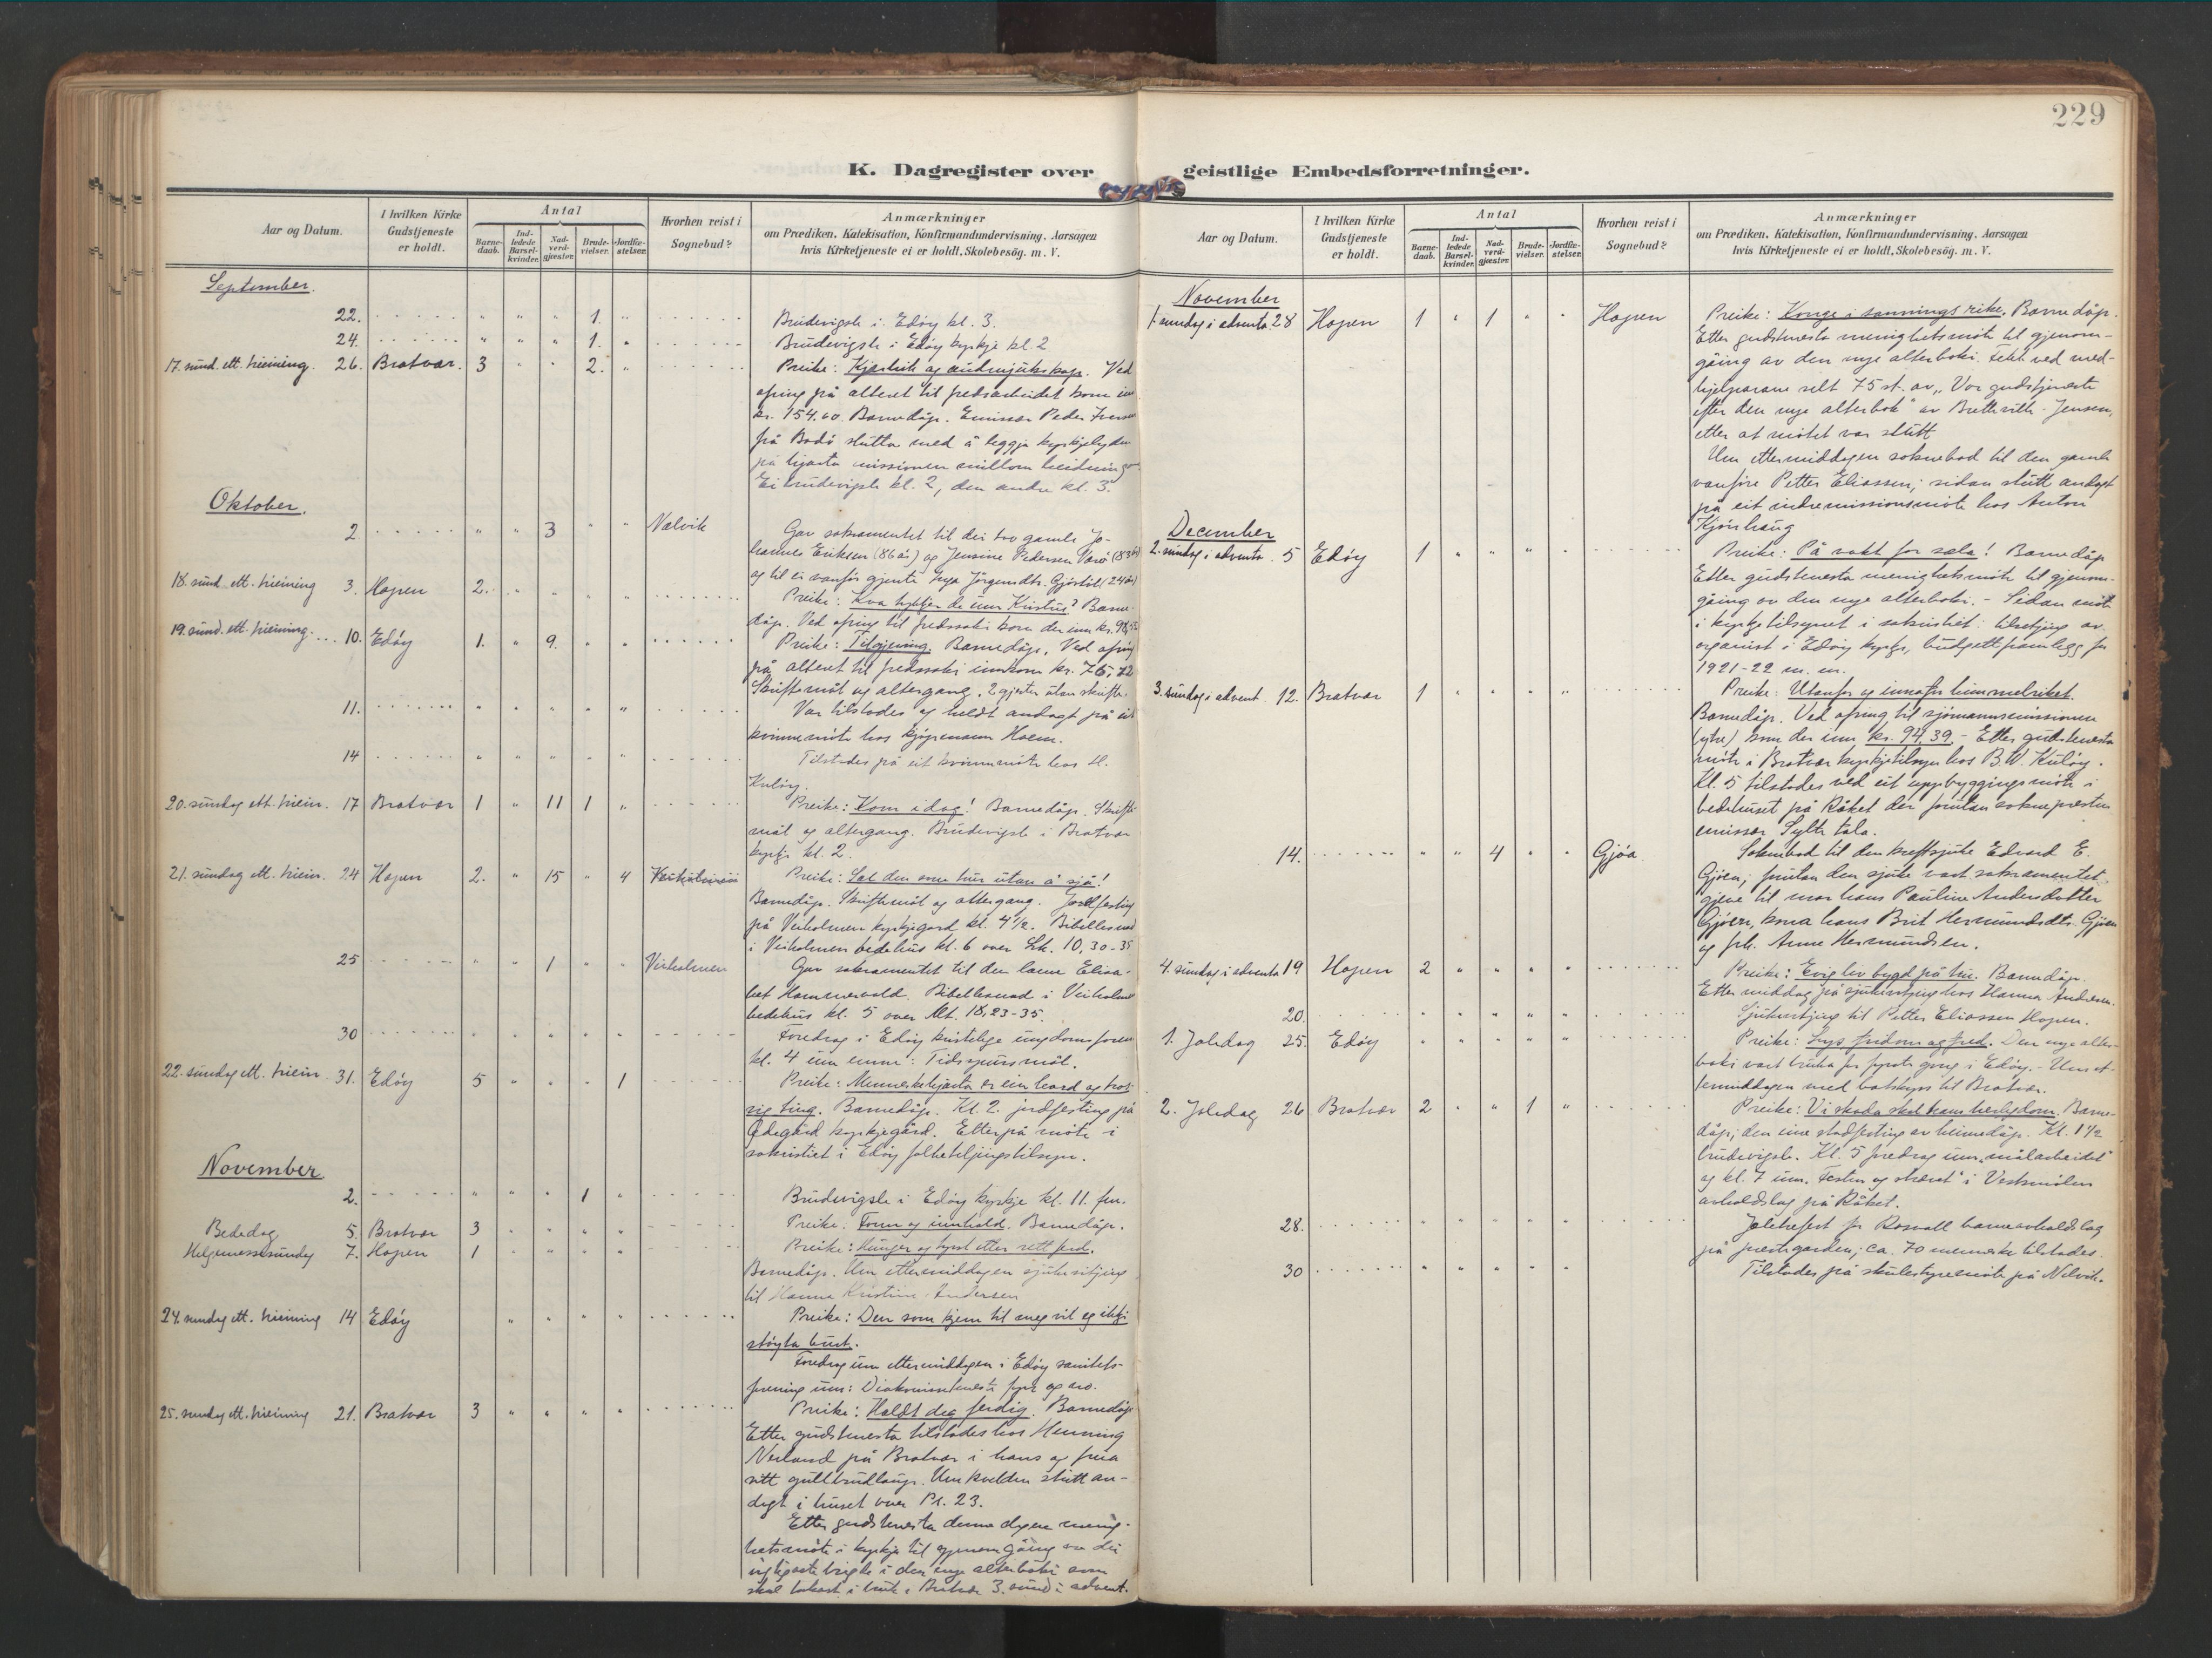 229
K. Dagregister over geistlige Embedsforretninger.
Aar og Datum.
I hvilken Kirke Gudstjeneste er holdt.
Antal
Barne-daab.
Ind-ledede Barsel-kvinder.
Nad-verd-gjæster.
Brude-vielser.
Jordfæ-stelser.
Hvorhen reist i Sognebud?
Anmærkninger
om Prædiken, Katekisation, Konfirmandundervisning, Aarsagen
hvis Kirketjeneste ei er holdt, Skolebesög. m. V.
September.
22. " " " 1. " Brudevigsle i Edöy kl. 3.
24. " " " 1. " Brudevigsle i Edöy kyrkje kl. 2
17. sund. ett. treining. 26. Bratvær. 3 " " 2. " Preike: Kjærleik og audmjukskap. Ved
ofring på alteret til fredsarbeidet kom inn
kr. 154,60. Barnedåp. Emissær Peder
frå Bodö slutta med å leggja kyrkjelyden
på hjarta missionen millom heidningar
Ei brudevigsle kl. 2, den andre kl. 3.
Oktober.
2 " " 3 " " Nelvik Gav sakramentet til dei tvo gamle Jo-
hannes Eriksen (86 år) og Jensine Pedersen
og til ei vanför gjenta Inga Jörgensdtr. (24 år)
18. sund. ett. treining 3. Hopen 2. " " " " Preike: Kva tykkjer de um Kristus? Barne-
dåp. Ved ofring til fredssaki kom der inn kr.
19. sund. ett. treining. 10. Edöy 1. " 9. " " Preike: Tilgjeving. Barnedåp. Ved ofring
på alteret til fredssaki innkom kr. 76,72
Skriftemål og altergang. 2 gjester utan skrifte.
11. " " " " " Var tilstades og heldt andagt på eit
kvinnemöte hos kjöpmann Holm.
14 " " " " " Tilstades på eit kvinnemöte hos H.
Kulöy.
20. sundag ett. trein. 17 Bratvær 1 " 11 1 " Preike: Kom idag! Barnedåp. Skrifte-
mål og altergang. Brudevigsle i Bratvær
kyrkje kl. 2.
21. sundag ett. trein. 24 Hopen 2. " 15 " 4 Preike: Sæl den som trur utan å sjå!
Barnedåp. Skriftemål og altergang. Jordfesting
på Veiholmen kyrkjegard kl. 4 1/2. Bibellesnad
i Veiholmen bedehus kl. 6 over Lk. 10,30-35
25 " " 1 " " Veiholmen Gav sakramentet til den lame Elisa-
bet Hammervold. Bibellesnad i Veiholmen
bedehus kl. 5 over Mt. 18,23-35.
30 " " " " " Foredrag i Edöy kristelige ungdomsforen.
kl. 4 um emne: Tidsspursmål.
22. sundag ett. trein. 31. Edöy 5 " " " 1 Preike: Menneskehjarta er ein hard og tros-
sig ting. Barnedåp. Kl. 2. jordfesting på
Ödegård kyrkjegård. Etterpå möte i
sakristiet i Edöy folketeljingstilsyn.
November
2. " " " 1 " Brudevigsle i Edöy kyrkje kl. 11. fm.
Bededag 5. Bratvær 3 " " " " Preike: Form og innhald. Barnedåp.
Helgemessesundag 7. Hopen 1 " " " " Preike: Hunger og tyrst etter rettferd.
Barnedåp. Um ettermiddagen sjukevitjing
til Hanna Kristine Andersen
24. sundag ett. treining 14 Edöy " " " " Preike: Den som kjem til meg vil eg ikkje
stöyta burt.
Foredrag um ettermiddagen i Edöy sanitets-
forening um: Diakonissetenesta fyrr og no.
25. sundag ett. treining 21. Bratvær 3 " " " " Preike: Haldt deg ferdig. Barnedåp
Etter gudstenesta tilstades hos Henning
Nerland på Bratvær i hans og frua
sitt gullbrudlaup. Um kvelden stutt an-
dagt i huset over Ps. 23.
Etter gudstenesta denne dagen menig-
hetsmöte i kyrkja til gjenomgåing av dei
vigtigaste brigde i den nye alterboki som
skal takast i bruk i Bratvær 3. sund. i advent.
November
1. sundag i advent 28 Hopen 1 " 1 " " Hopen Preike: Konge i sannings rike. Barnedåp.
Etter gudstenesta menighetsmöte til gjenom-
gåing av den nye alterboki. Selt ved med-
hjelparane selt 75 st. av "Vor gudstjeneste
efter den nye alterbok" av Brettville-Jensen,
etter at mötet var slutt
Um ettermiddagen soknebod til den gamle
vanföre Petter Eliassen; sidan stutt andagt
på eit indremissionsmöte hos Anton
Kjönhaug
December
2. sundag i advent. 5 Edöy 1 " " " " Preike: På vakt for sæla! Barnedåp
Etter gudstenesta menighetsmöte til gjenom-
gåing av den nye alterboki. - Sidan möte
i kyrkjetilsynet i sakristiet: tilsetjing av
organist i Edöy kyrkje, budgettframlegg for
1921-22 m. m.
3. sundag i advent 12. Bratvær 1 " " " " Preike: Utanfor og innafor himmelriket.
Barnedåp. Ved ofring til sjömannsmissionen
(ytre) kom der inn kr. 94,39. - Etter gudstenesta
möte i Bratvær kyrkjetilsyn hos B.W. Kulöy.
Kl. 5 tilstades ved eit uppbyggingsmöte i
bedehuset på Råket der forutan soknepresten
emissær Sylte tala.
14. " " 4 " " Gjöa Soknebod til den kreftsjuke Edvard E.
Gjöen; forutan den sjuke vart sakramentet
gjeve til mor hans Pauline Andersdotter
Gjöen, kona hans Brit Hermundsdtr. Gjöen
og frk. Anne Hermundsen.
4. sundag i advent 19. Hopen 2 " " " " Preike: Evig liv bygd på tru. Barnedåp.
Ettermiddag på sjukevitjing hos Hanna Andersen.
20. " " " " " Sjukevitjing til Petter Eliassen Hopen.
1. Joledag 25. Edöy " " " " " Preike: Ljos fridom og fred. Den nye alter-
boki vart bruka for fyrste gong i Edöy. - Um et-
termiddagen med båtskyss til Bratvær.
2. Joledag 26 Bratvær 2 " " 1 " Preike: Vi skoda skal hans herlegdom. Barne-
dåp; den eine stadfesting av heimedåp. Kl. 1 1/2
brudevigsle. Kl. 5 foredrag um "målarbeidet"
og kl. 7 um. "Festen og strævet" i Vestsmölen
avholdslag på Råket.
28. " " " " " Joletrefest for Rosvoll barneavholdslag
på prestgarden; ca. 70 menneske tilstades.
30 " " " " " Tilstades på skulestyremöte på Nelvik.